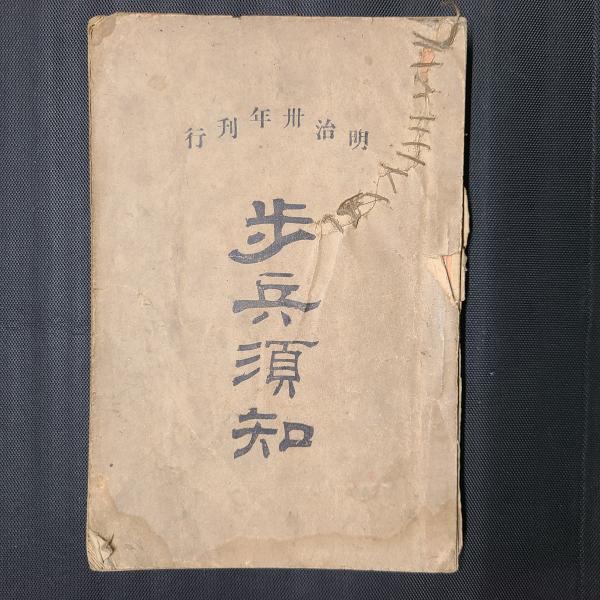 明治卅年刊行
步兵須知